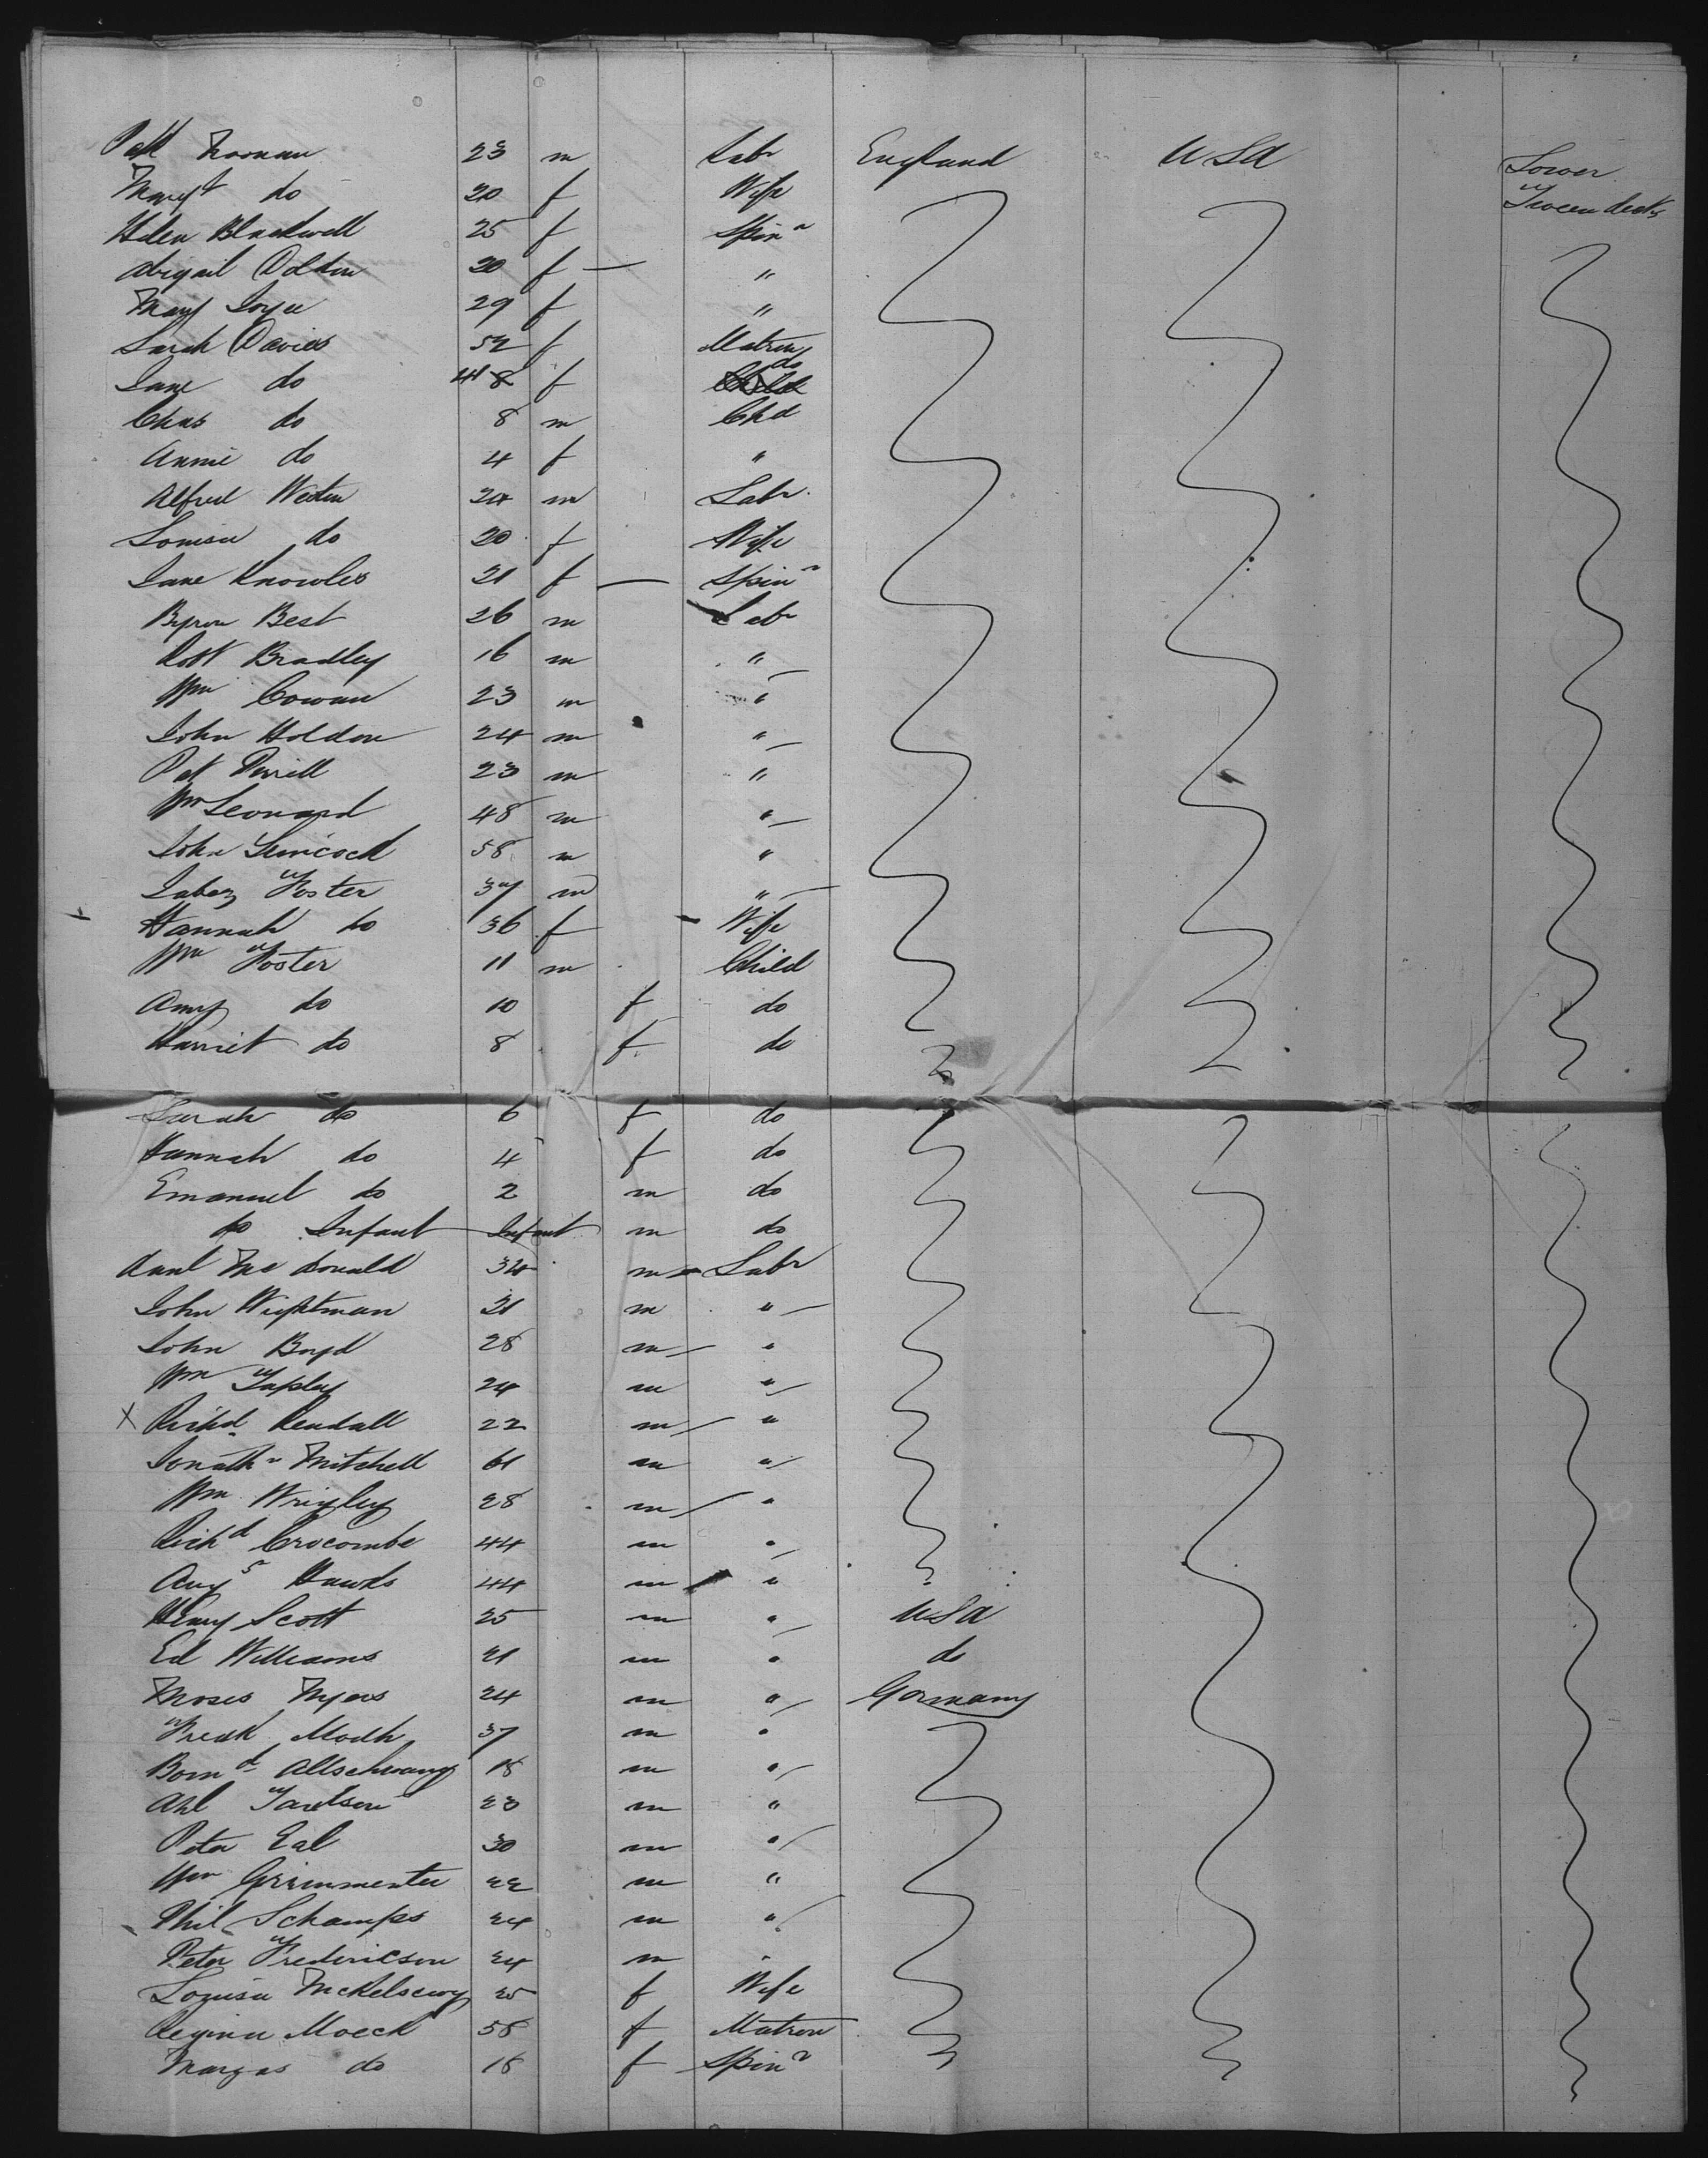 Patk Noonan 23 m Labr England USA Lower
Margt do 20 f Wife Tween decks
Helen Blackwell 25 f Spinr
Abigail Dolton 20 f — "
Mary Joyce 29 f "
Sarah Davies 52 f Matron
Jane do f do
Chas do 8 m Chd
Annie do 4 f "
Alfred Weston 24 m Labr
Louisa do 20 f Wife
Jane Knowles 21 f — Spinr
Byron Best 26 m Labr
Robt Bradley 16 m "
Wm Cowan 23 m "
John Holdon 24 m "
Pat 23 m "
Wm Leonard 48 m "
John 58 m "
Jabez Foster 37 m "
Hannah do 36 f Wife
Wm Foster 11 m Child
Amy do 10 f do
Harriet do 8 f do
Sarah do 6 f do
Hannah do 4 f do
Emanuel do 2 m do
do Infant Infant m do
Danl Mc Donald 34 m Labr
John Wightman 21 m "
John Boyd 28 m "
Wm Tapley 24 m "
X Richd Kendall 22 m "
Jonathn Mitchell 61 m "
Wm Wrigley 28 m "
Richd Crocombe 44 m "
Augs Hawks 44 m "
Henry Scott 25 m " USA
Ed Williams 21 m " do
Moses Myers 24 m " Germany
Fredk 37 m "
Bernd Altschwang 18 m "
23 m "
Peter 30 m "
Wm Grimmenter 22 m "
Phil Schamps 24 m "
Peter Fredericson 24 m "
Louisa 25 f Wife
Regina Moeck 58 f Matron
Margas do 18 f Spinr